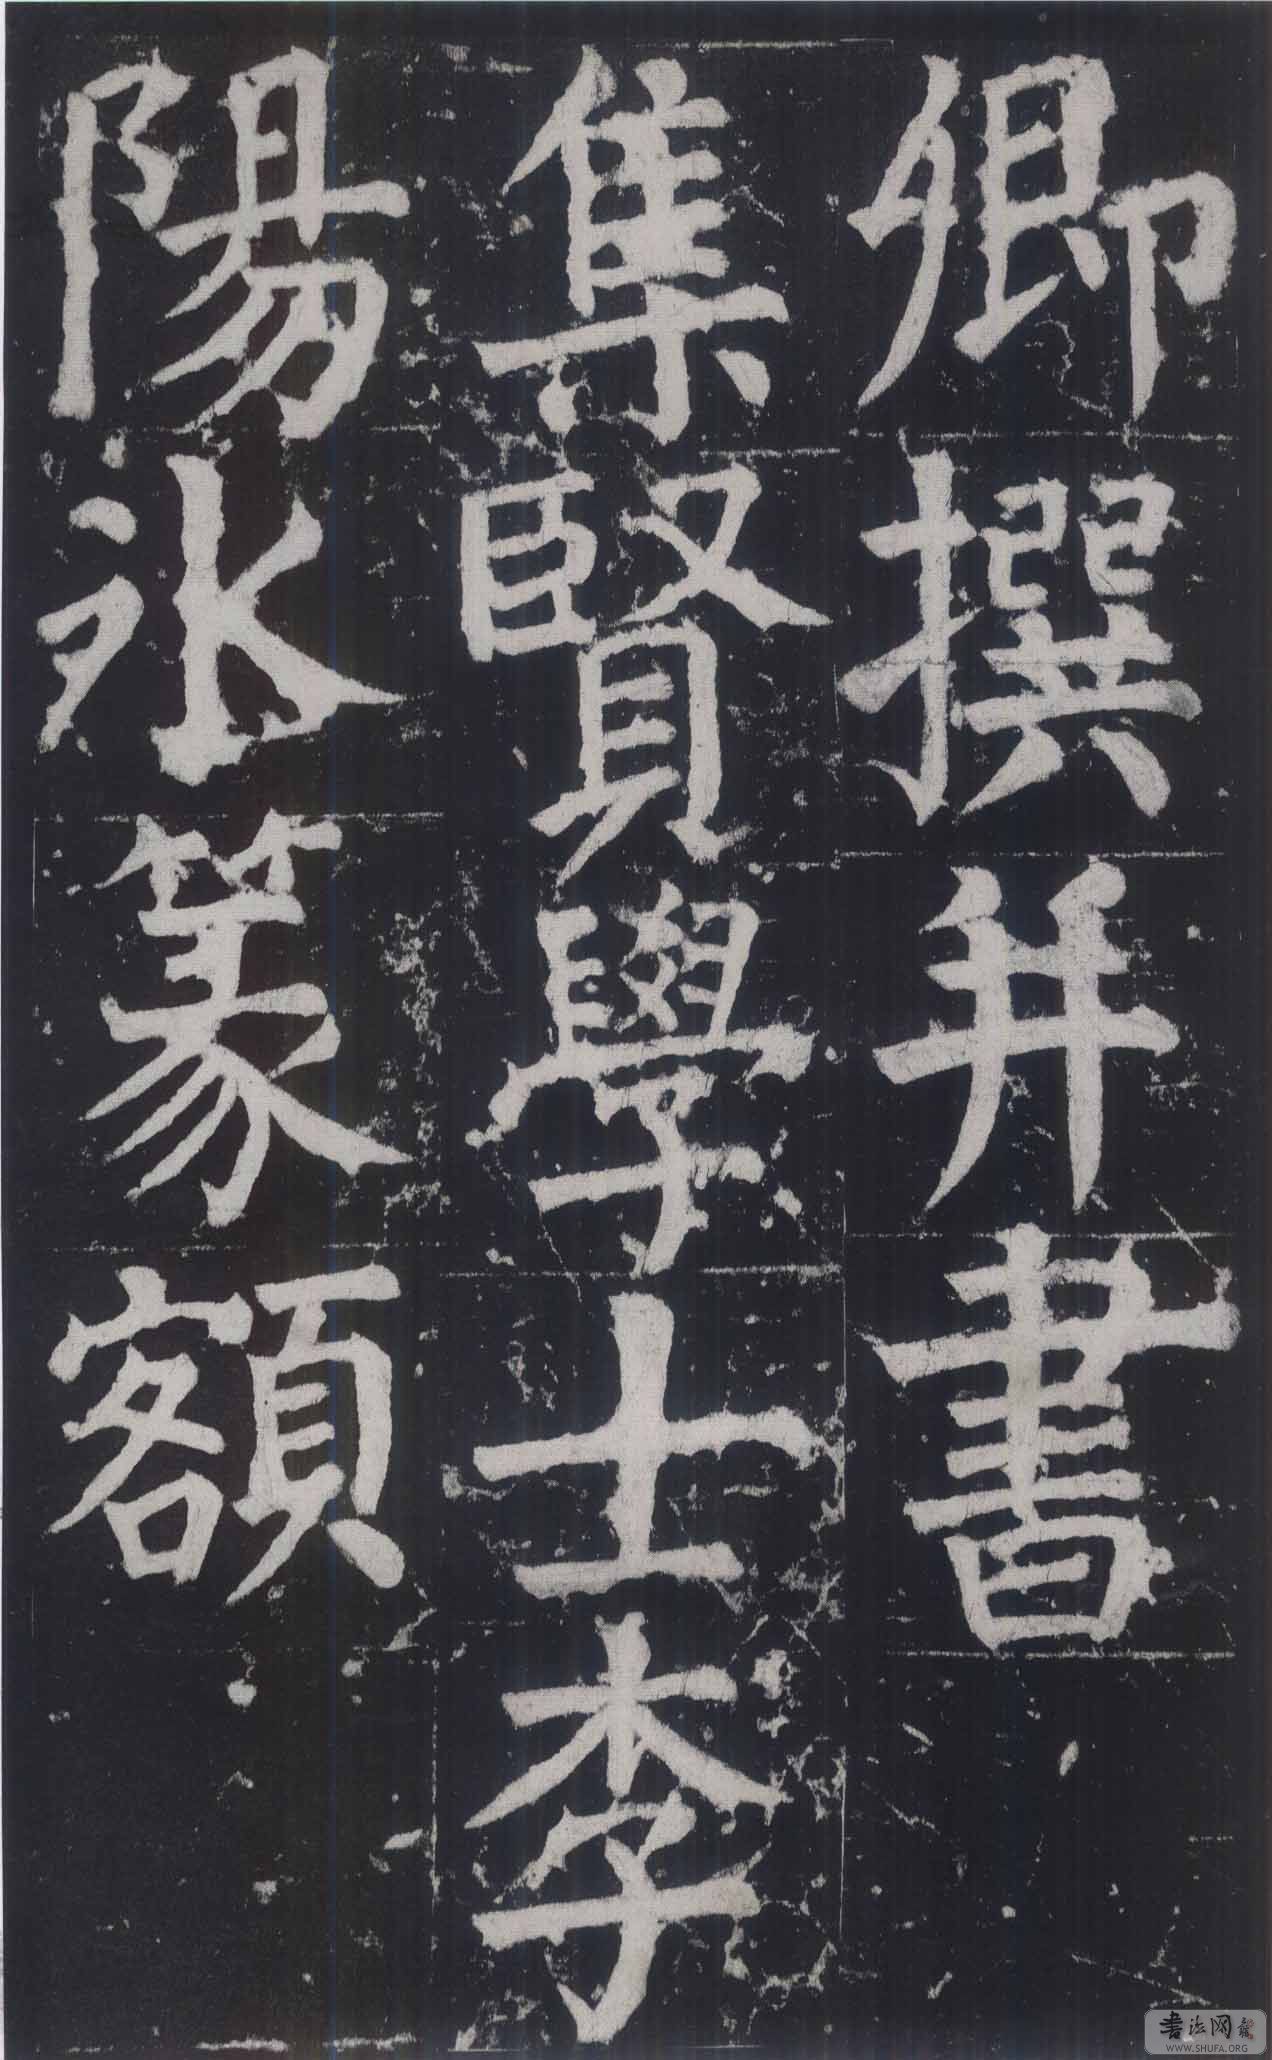 卿撰并書
集賢學士李
陽冰篆額
书法网
WWW.SHUFA.ORG